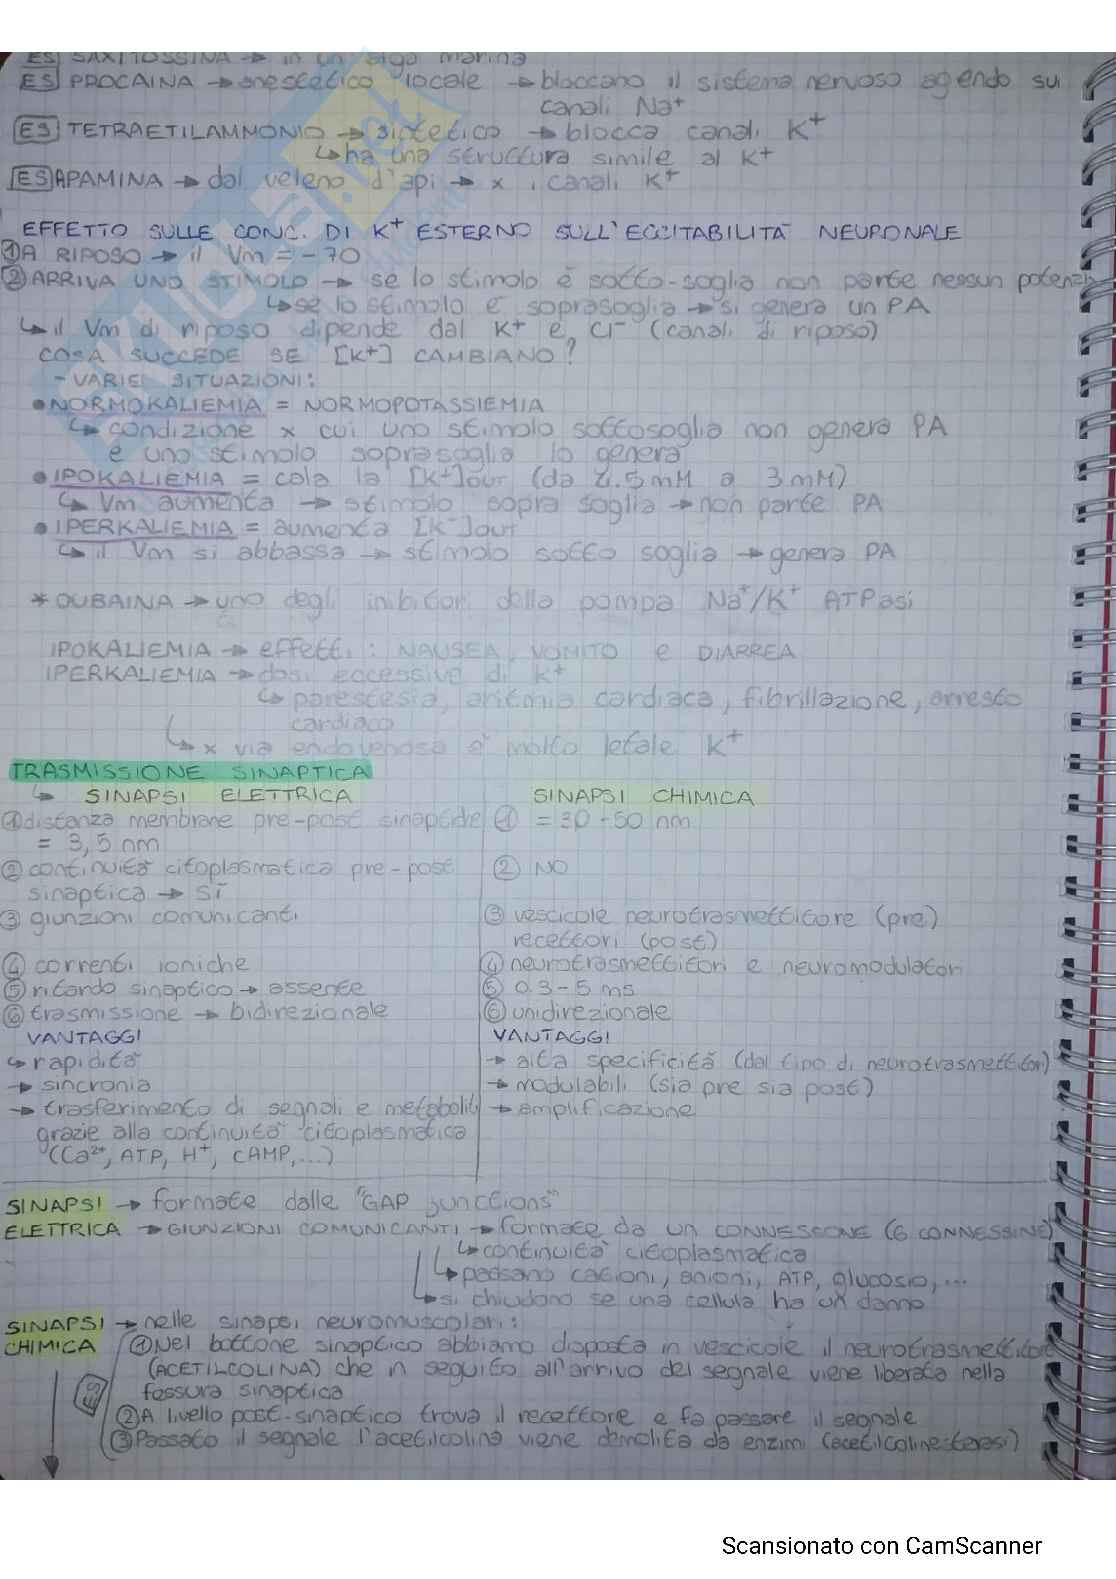 ES SAXITOSSINA → in un'alga marina
ES PROCAINA → anestetico locale → bloccano il sistema nervoso agendo sui
canali Na⁺
ES TETRAETILAMMONIO → sintetico → blocca canali K⁺
↳ ha una struttura simile al K⁺
ES APAMINA → dal veleno d'api → x i canali K⁺
EFFETTO SULLE CONC. DI K⁺ ESTERNO SULL'ECCITABILITÀ NEURONALE
① A RIPOSO → il Vm = -70
② ARRIVA UNO STIMOLO → se lo stimolo è sotto-soglia non parte nessun potenzi
↳ se lo stimolo è soprasoglia → si genera un PA
↳ il Vm di riposo dipende dal K⁺ e Cl⁻ (canali di riposo)
COSA SUCCEDE SE [K⁺] CAMBIANO?
- VARIE SITUAZIONI:
• NORMOKALIEMIA = NORMOPOTASSIEMIA
↳ condizione x cui uno stimolo sottosoglia non genera PA
e uno stimolo soprasoglia lo genera
• IPOKALIEMIA = cala la [K⁺]out (da 4.5mM a 3mM)
↳ Vm aumenta → stimolo sopra soglia → non parte PA
• IPERKALIEMIA = aumenta [K⁺]out
↳ il Vm si abbassa → stimolo sotto soglia → genera PA
* OUBAINA → uno degli inibitori della pompa Na⁺/K⁺ ATPasi
IPOKALIEMIA → effetti: NAUSEA, VOMITO e DIARREA
IPERKALIEMIA → dosi eccessive di K⁺
↳ parestesia, aritmia cardiaca, fibrillazione, arresto
cardiaco
↳ x via endovenosa è molto letale K⁺
TRASMISSIONE SINAPTICA
↳ SINAPSI ELETTRICA SINAPSI CHIMICA
① distanza membrane pre-post sinaptiche ① = 30-50 nm
= 3,5 nm
② continuità citoplasmatica pre-post ② NO
sinaptica → Sì
③ giunzioni comunicanti ③ vescicole neurotrasmettitore (pre)
recettori (post)
④ correnti ioniche ④ neurotrasmettitori e neuromodulatori
⑤ ritardo sinaptico → assente ⑤ 0.3-5 ms
⑥ trasmissione → bidirezionale ⑥ unidirezionale
VANTAGGI VANTAGGI
↳ rapidità → alta specificità (dal tipo di neurotrasmettitori)
→ sincronia → modulabili (sia pre sia post)
→ trasferimento di segnali e metaboliti → amplificazione
grazie alla continuità citoplasmatica
(Ca²⁺, ATP, H⁺, cAMP,...)
SINAPSI → formate dalle "GAP junctions"
ELETTRICA → GIUNZIONI COMUNICANTI → formate da un CONNESSONE (6 CONNESSINE)
↳ continuità citoplasmatica
↳ passano cationi, anioni, ATP, glucosio,...
↳ si chiudono se una cellula ha un danno
SINAPSI → nelle sinapsi neuromuscolari:
CHIMICA ① Nel bottone sinaptico abbiamo disposta in vescicole il neurotrasmettitore
(ACETILCOLINA) che in seguito all'arrivo del segnale viene liberata nella
fessura sinaptica
ES ② A livello post-sinaptico trova il recettore e fa passare il segnale
③ Passato il segnale l'acetilcolina viene demolita da enzimi (acetilcolinesterasi)
Scansionato con CamScanner